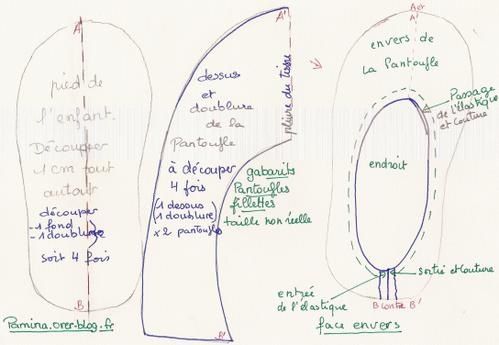 A
pied de
l'enfant.
Découper
1 cm tout
autour
découper
- 1 fond
- 1 doublure
soit 4 fois
B
Pamina.over-blog.fr
A'
dessus
et
doublure
de la
Pantoufle
à découper
4 fois
(1 dessus
1 doublure)
x 2 pantoufles
B'
pliure du tissu
gabarits
Pantoufles
fillettes
taille non réelle
A et
A'
envers de
La Pantoufle
Passage
de l'élastique
et Couture
endroit
entrée
de l'élastique
sortie et couture
B contre B'
face envers